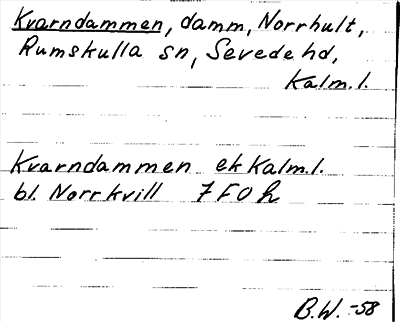 Kvarndammen, damm, Norrhult,
Rumskulla sn, Sevede hd,
Kalm.l.
Kvarndammen ek Kalm.l.
bl. Norrkvill 7 F 0 h
B.W. -58